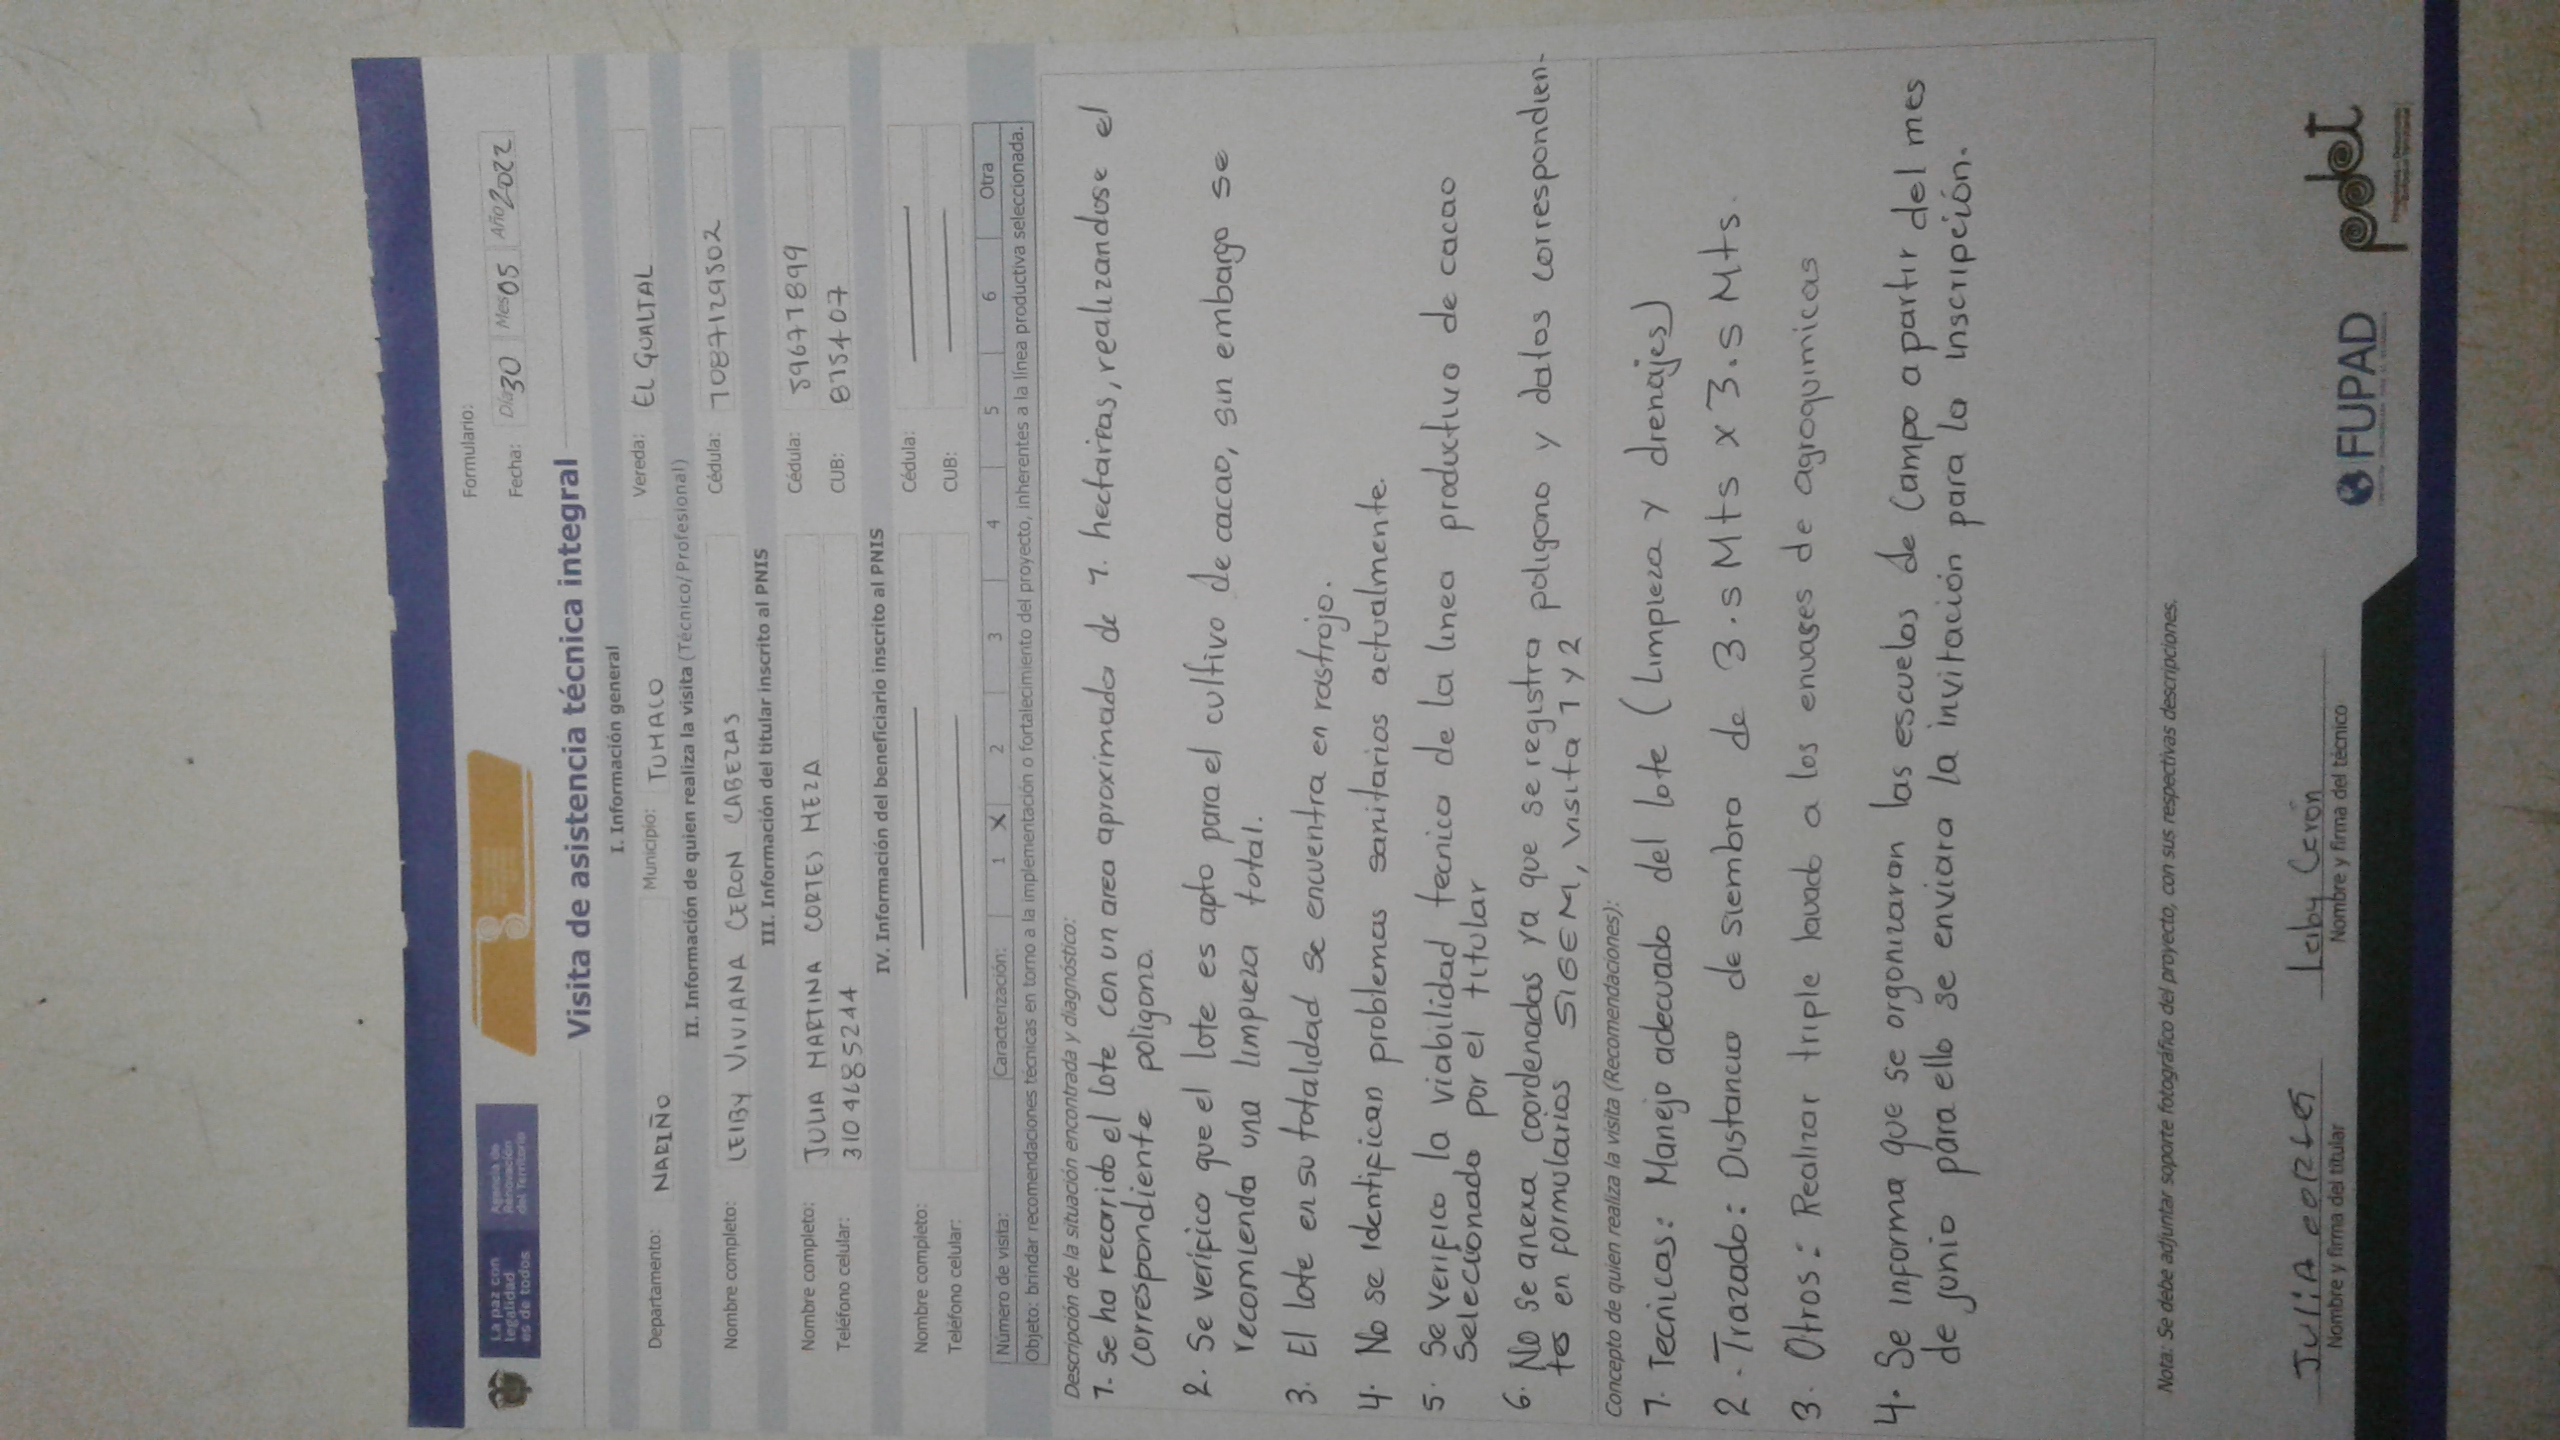 La paz con
legalidad
es de todos
Agencia de
Renovación
del Territorio
Formulario:
Fecha: Día 30 Mes 05 Año 2022
Visita de asistencia técnica integral
I. Información general
Departamento: NARIÑO Municipio: TUMACO Vereda: EL GUALTAL
II. Información de quien realiza la visita (Técnico/ Profesional)
Nombre completo: LEIBY VIVIANA CERON CABEZAS Cédula: 1087129502
III. Información del titular inscrito al PNIS
Nombre completo: JULIA MARTINA CORTES MEZA Cédula: 59671899
Teléfono celular: 3104685244 CUB:
IV. Información del beneficiario inscrito al PNIS
Nombre completo: Cédula:
Teléfono celular: CUB:
Número de visita: Caracterización: 1 X 2 3 4 5 6 Otra
Objeto: brindar recomendaciones técnicas en torno a la implementación o fortalecimiento del proyecto, inherentes a la línea productiva seleccionada.
Descripción de la situación encontrada y diagnóstico:
1. Se ha recorrido el lote con un area aproximada de 1. hectareas, realizandose el
correspondiente poligono.
2. Se verifico que el lote es apto para el cultivo de cacao, sin embargo se
recomienda una limpieza total.
3. El lote en su totalidad se encuentra en rastrojo.
4. No se identifican problemas sanitarios actualmente.
5. Se verifico la viabilidad tecnica de la linea productivo de cacao
Selecionado por el titular
6. No se anexa coordenadas ya que se registra poligono y datos correspondien-
tes en formularios SIGEM, visita 1 y 2
Concepto de quien realiza la visita (Recomendaciones):
1. Tecnicas: Manejo adecuado del lote (Limpieza y drenajes)
2. Trazado: Distancia de siembra de 3.5 Mts x 3.5 Mts.
3. Otros: Realizar triple lavado a los envases de agroquimicas
4. Se informa que se organizaran las escuelas de Campo a partir del mes
de junio para ello se enviara la invitación para la inscripción.
Nota: Se debe adjuntar soporte fotográfico del proyecto, con sus respectivas descripciones.
JuliA coRtes
Nombre y firma del titular
Leiby Cerón
Nombre y firma del técnico
FUPAD
pdet